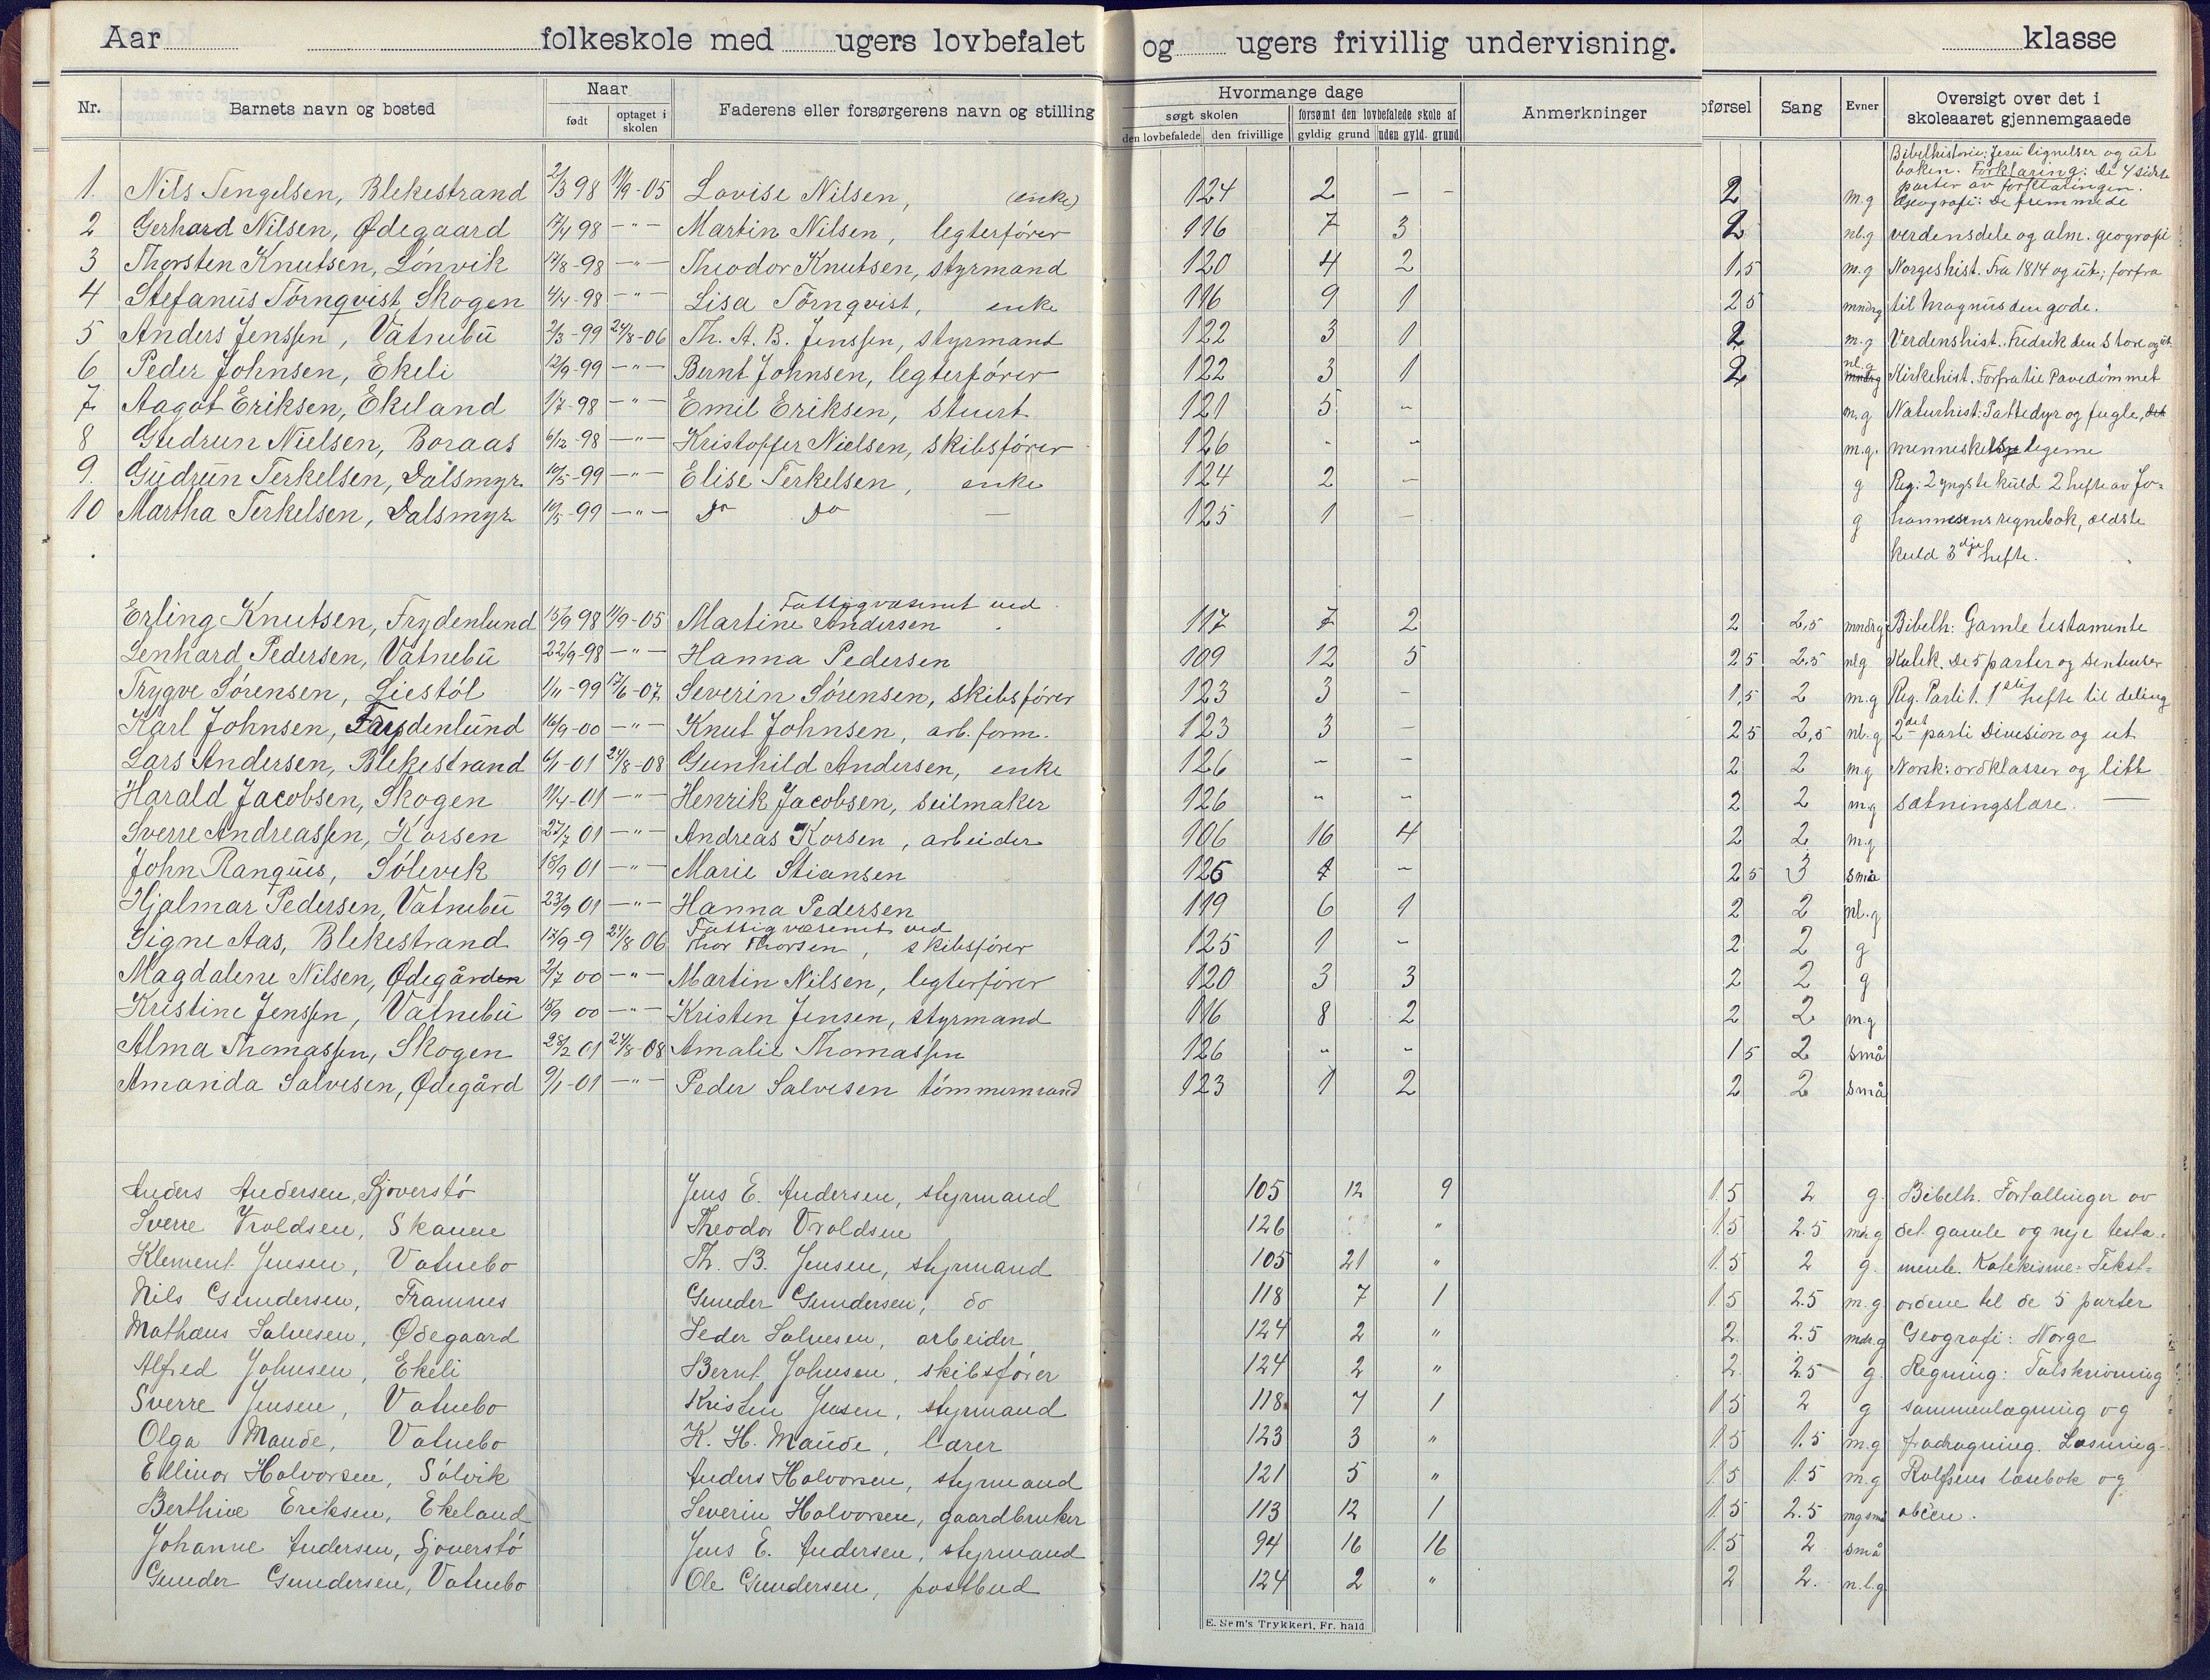 Aar folkeskole med ugers lovbefalet og ugers frivillig undervisning. klasse
Nr. Barnets navn og bosted Naar født optaget i skolen Faderens eller forsørgerens navn og stilling Hvormange dage søgt skolen den lovbefalede den frivillige forsømt den lovbefalede skole af gyldig grund uden gyld. grund Anmerkninger pførsel Sang Evner Oversigt over det i skoleaaret gjennemgaaede
Bibelhistorie: Jesu lignelser og ut
boken. Forklaring: De 4 sidste
parter av forklaringen.
1. Nils Tengelsen, Blekestrand 2/3 98 11/9-05 Lovise Nilsen, (enke) 124 2 - - 2 m.g Geografi: De fremmede
2 Gerhard Nilsen, Ødegaard 17/4 98 -"- Martin Nilsen, legterfører 116 7 3 2 nl.g verdensdele og alm. geografi
3 Thorsten Knutsen, Lønvik 17/8-98 -"- Theodor Knutsen, styrmand 120 4 2 1,5 m.g Norgeshist. Fra 1814 og ut; forfra
4 Stefanus Törnqvist, Skogen 4/4-98 -"- Lisa Törnqvist, enke 116 9 1 2 5 mndrg til Magnus den gode.
5 Anders Jenssen, Vatnebu 2/3-99 24/8-06 Th. A. B. Jenssen, styrmand 122 3 1 2 m.g Verdenshist. Fredrik den Store og ut
6 Peder Johnsen, Ekeli 12/9-99 -"- Bernt Johnsen, legterfører 122 3 1 2 nl.g mndrg Kirkehist. Forfra til Pavedømmet
7 Aagot Eriksen, Ekeland 1/7-98 -"- Emil Eriksen, stuert 121 5 - m.g Naturhist: Pattedyr og fugle, det
8 Gudrun Nielsen, Boraas 6/12-98 -"- Kristoffer Nielsen, skibsfører 126 - - m.g. menneskelige legeme
9. Gudrun Terkelsen, Dalsmyr 10/5-99 -"- Elise Terkelsen, enke 124 2 - g Reg: 2 yngste kuld 2 hefte av Jo-
10 Martha Terkelsen, Dalsmyr 10/5-99 -"- Do Do - 125 1 - g hannesens regnebok, ældste
kuld 3dje hefte.
Erling Knutsen, Frydenlund 15/9 98 11/9-05 Fattigvæsenet ved Martine Andersen 117 7 2 2 2,5 mndrg Bibelh: Gamle testamente
Lenhard Pedersen, Vatnebu 22/9-98 -"- Hanna Pedersen 109 12 5 2 5 2,5 nlg Katek. De 5 parter og sentenser
Trygve Sørensen, Liestøl 1/11-99 17/6-07 Severin Sørensen, skibsfører 123 3 - 1,5 2 m.g Reg. Parti 1. 1ste hefte til deling
Karl Johnsen, Frydenlund 16/9-00 -"- Knut Johnsen, arb. form. 123 3 - 2 5 2,5 nl.g 2det parti Division og ut
Lars Andersen, Blekestrand 6/1-01 24/8-08 Gunhild Andersen, enke 126 - - 2 2 m.g Norsk: ordklasser og litt
Harald Jacobsen, Skogen 11/4-01 -"- Henrik Jacobsen, seilmaker 126 " - 2 2 m.g sætningslære. -
Sverre Andreassen, Korsen 27/7 01 -"- Andreas Korsen, arbeider 106 16 4 2 2 m.g
John Ranquis, Sølevik 18/9 01 -"- Marie Stiansen 125 1 - 2 5 3 små
Hjalmar Pedersen, Vatnebu 23/9 01 -"- Hanna Pedersen 119 6 1 2 2 nl.g
Signe Aas, Blekestrand 12/9-9 24/8 06 Fattigvæsenet ved Thor Thorsen, skibsfører 125 1 - 2 2 g
Magdalene Nilsen, Ødegården 2/7 00 -"- Martin Nilsen, legterfører 120 3 3 2 2 g
Kristine Jenssen, Vatnebu 18/9 00 -"- Kristen Jensen, styrmand 116 8 2 2 2 m.g
Alma Thomassen, Skogen 28/2 01 24/8-08 Amalie Thomassen 126 " - 1 5 2 små
Amanda Salvesen, Ødegård 9/1-01 -"- Peder Salvesen tømmermand 123 1 2 2 2 små
Anders Andersen, Sjoverstø Jens E. Andersen, styrmand 105 12 9 1.5 2 g. Bibelh. Fortællinger av
Sverre Vroldsen, Skauen Theodor Vroldsen 126 " 1.5 2.5 mdr.g det gamle og nye testa-
Klement Jensen, Vatnebo Th. B. Jensen, styrmand 105 21 " 1.5 2 g. mente. Katekisme: Tekst-
Nils Gundersen, Framnes Gunder Gundersen, do 118 7 1 1.5 2.5 m.g. ordene til de 5 parter
Mathæus Salvesen, Ødegaard Peder Salvesen, arbeider 124 2 " 2. 2.5 mdr.g Geografi: Norge
Alfred Johnsen, Ekeli Bernt Johnsen, skibsfører 124 2 " 2. 2.5 g. Regning: Talskrivning
Sverre Jensen, Vatnebo Kristen Jensen, styrmand 118 7 1 1.5 2 g sammenlægning og
Olga Maude, Vatnebo K. H. Maude, lærer 123 3 " 1.5 1.5 m.g fradragning. Læsning-
Ellinor Halvorsen, Sølvik Anders Halvorsen, styrmand 121 5 " 1.5 1.5 m.g Rolfsens læsebok og
Berthine Eriksen, Ekeland Severin Halvorsen, gaardbruker 113 12 1 1.5 2.5 mg små abcen.
Johanne Andersen, Sjoverstø Jens E. Andersen, styrmand 94 16 16 1.5 2 små
Gunder Gundersen, Vatnebo Ole Gundersen, postbud 124 2 " 2 2. n.l.g
E. Sem's Trykkeri, Fr. hald